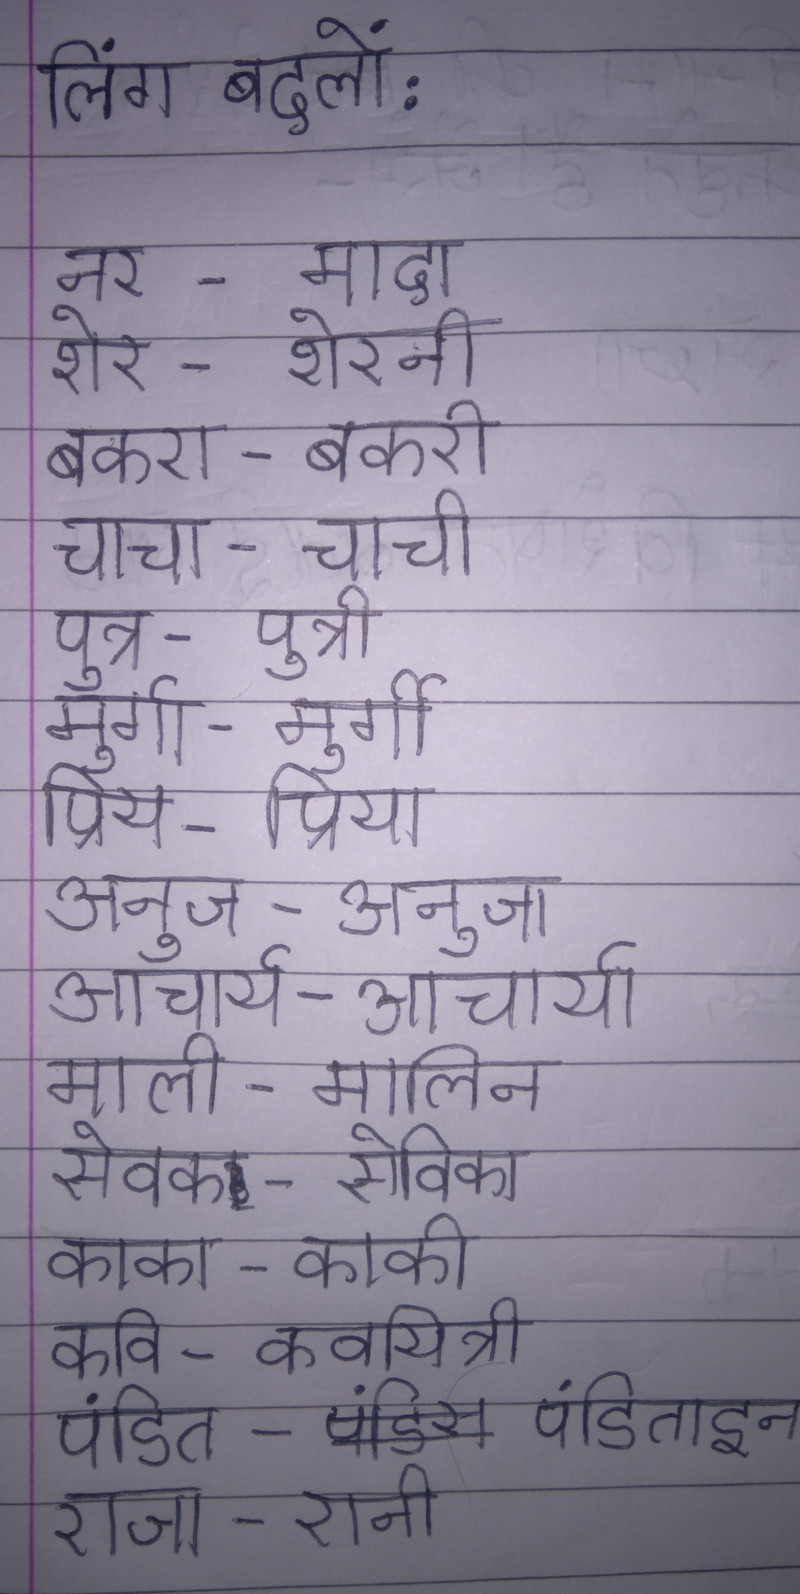 लिंग बदलों:
नर - मादा
शेर - शेरनी
बकरा - बकरी
चाचा - चाची
पुत्र - पुत्री
मुर्गा - मुर्गी
प्रिय - प्रिया
अनुज - अनुजा
आचार्य - आचार्या
माली - मालिन
सेवक - सेविका
काका - काकी
कवि - कवयित्री
पंडित - पंडिताइन
राजा - रानी